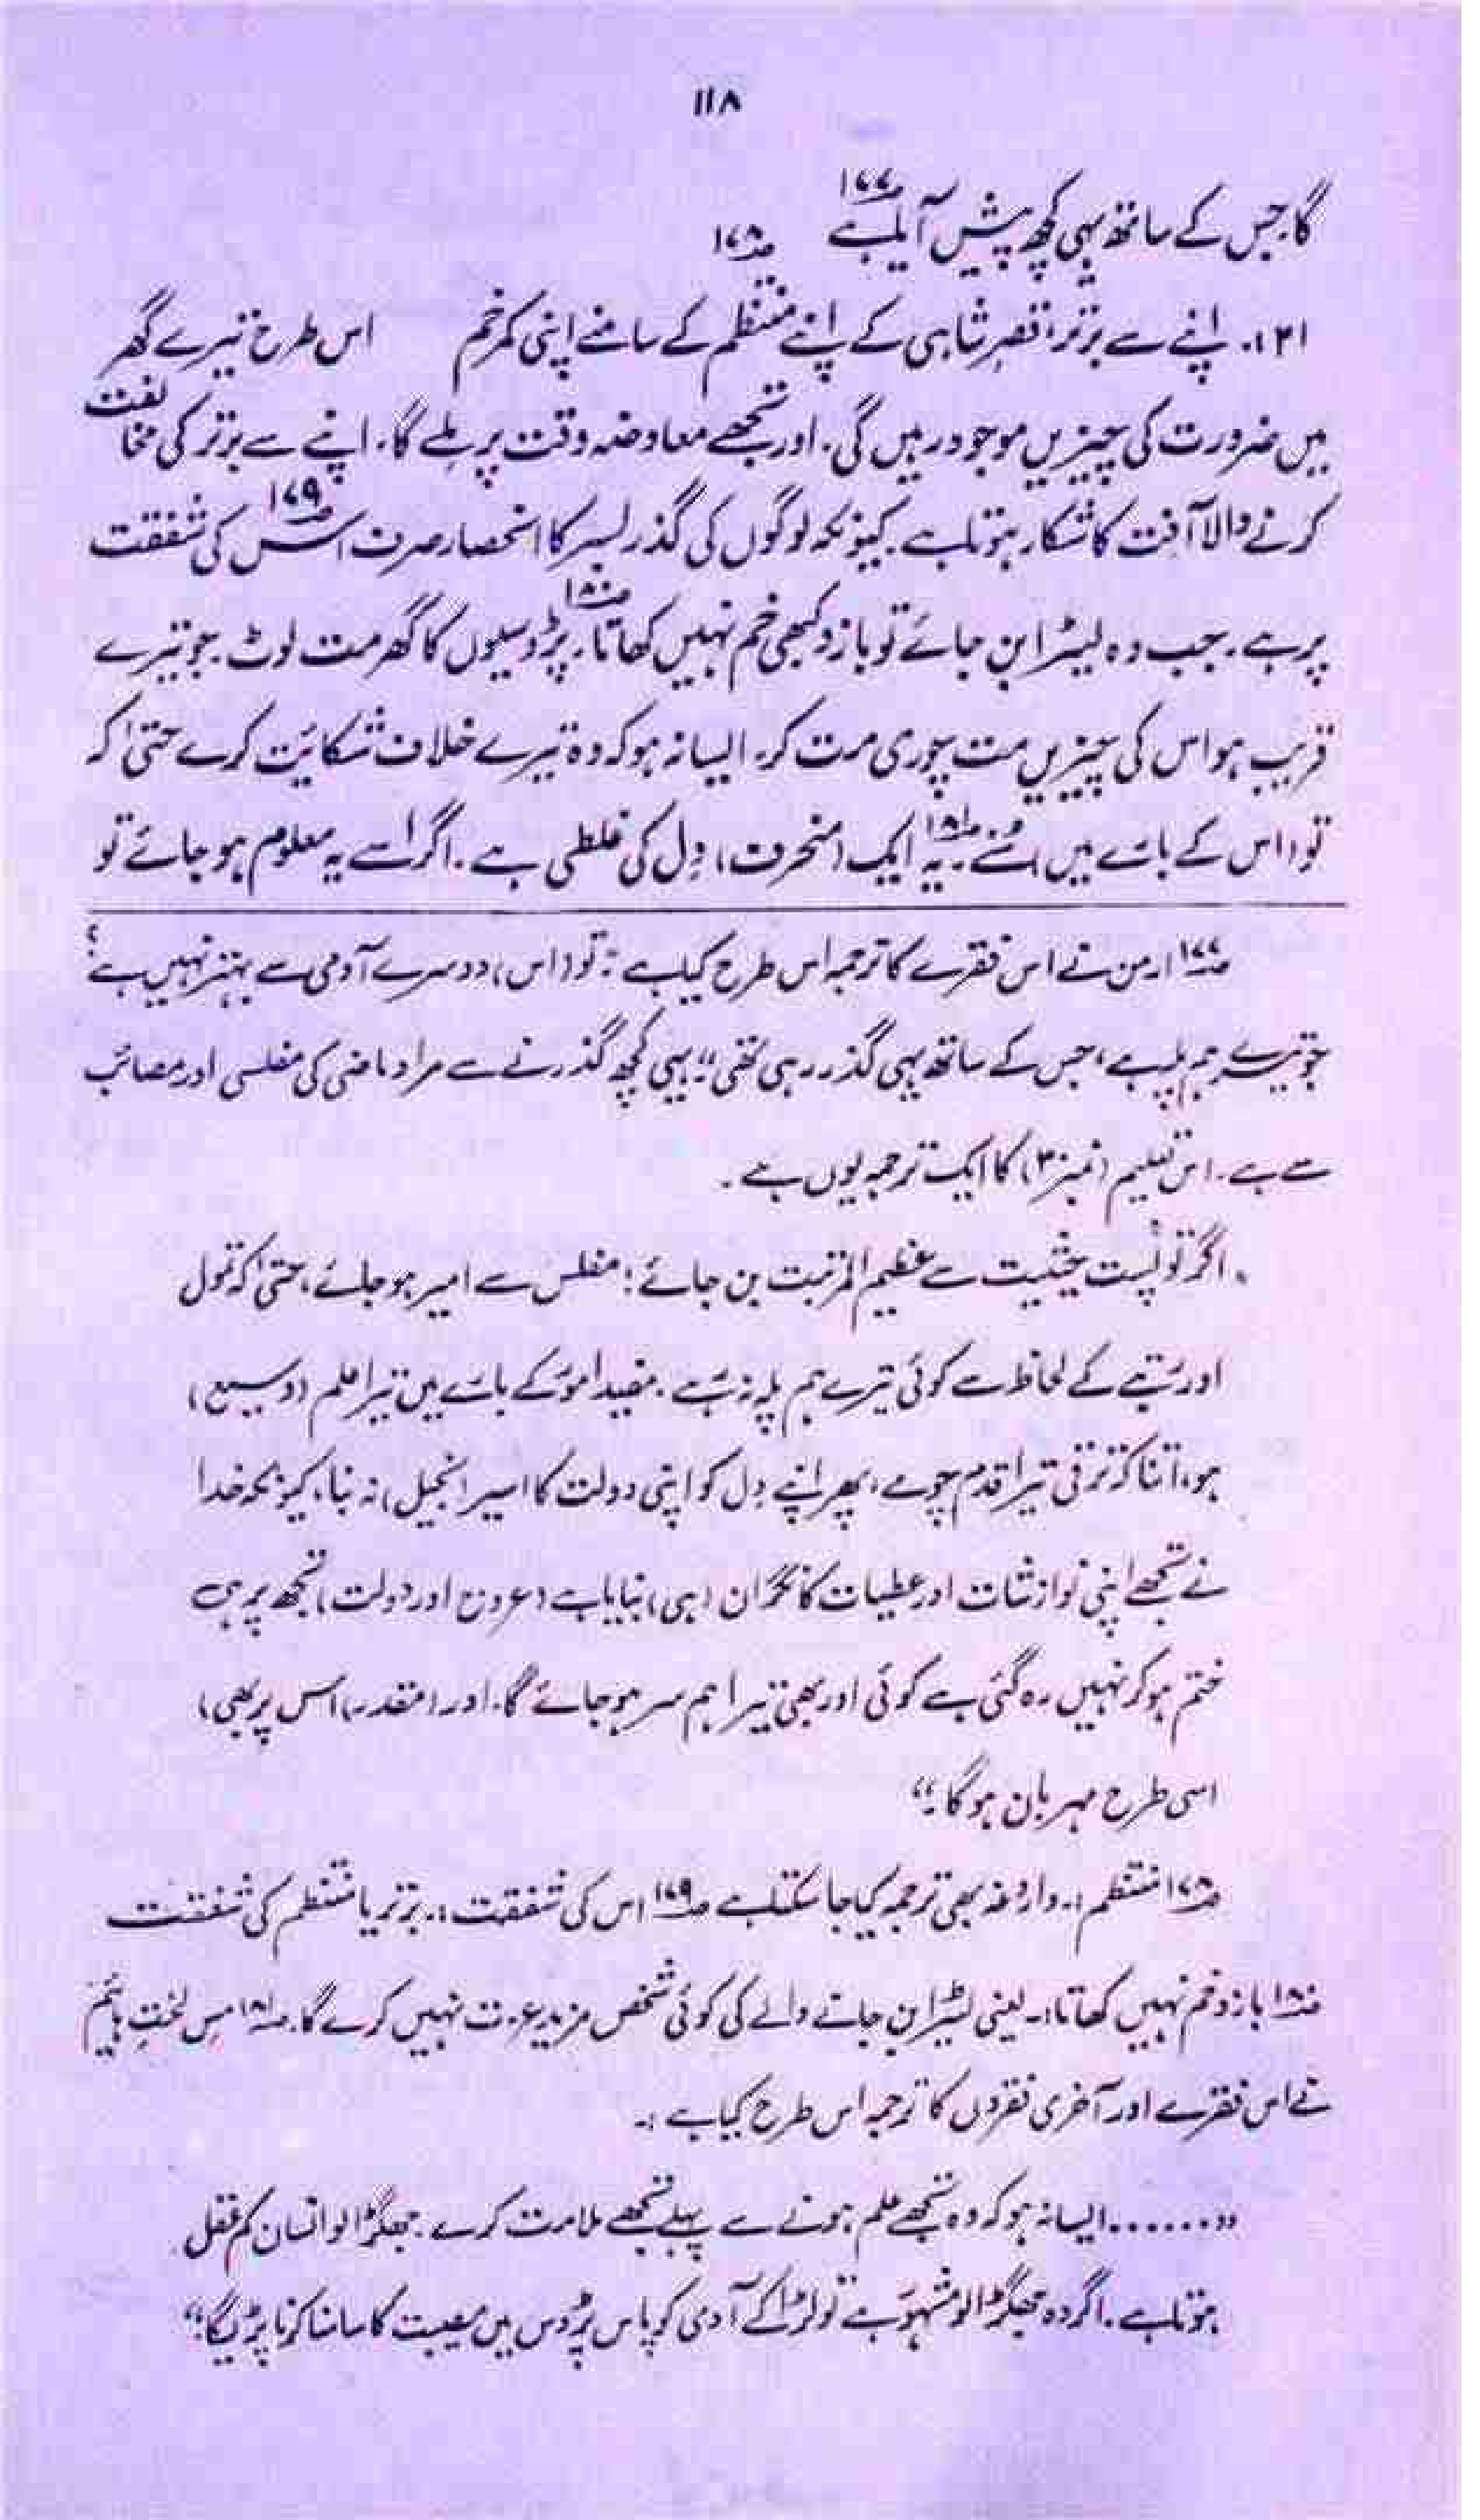 ۱۱۸
گا. جس کے ساتھ یہی کچھ پیش آیا ہے ۱۷۷
(۳۱). اپنے سے برتر، قصرِ شاہی کے اپنے منتظم ۱۷۸ کے سامنے اپنی کمر خم اس طرح تیرے گھر
میں ضرورت کی چیزیں موجود رہیں گی. اور تجھے معاوضہ وقت پر ملے گا. اپنے سے برتر کی مخالفت
کرنے والا آفت کا شکار ہوتا ہے. کیونکہ لوگوں کی گذر بسر کا انحصار صرف اس ۱۷۹ کی شفقت
پر ہے. جب وہ لیٹرا بن جائے تو بازو کبھی خم نہیں کھاتا ۱۸۰. پڑوسیوں کا گھر مت لوٹ. جو تیرے
قریب ہو اس کی چیزیں مت چوری مت کر. ایسا نہ ہو کہ وہ تیرے خلاف شکائت کرے حتیٰ کہ
تو (اس کے بارے میں) سُنے ۱۸۱. یہ ایک (منحرف) دِل کی غلطی ہے. اگر اسے یہ معلوم ہو جائے تو
۱۷۷ ارمن نے اس فقرے کا ترجمہ اس طرح کیا ہے: "تو (اس) دوسرے آدمی سے بہتر نہیں ہے
جو تیرے ہم پلہ ہے، جس کے ساتھ یہی گذر رہی تھی" یہی کچھ گذرنے سے مراد ماضی کی مفلسی اور مصائب
سے ہے. اس تعلیم (نمبر ۳۰) کا ایک ترجمہ یوں ہے.
"اگر تو پست حیثیت سے عظیم المرتبت بن جائے؛ مفلس سے امیر ہو جائے، حتیٰ کہ تمول
اور رتبے کے لحاظ سے کوئی تیرے ہم پلہ نہ رہے. مفید امور کے بارے میں تیرا علم (وسیع)
ہو، اتنا کہ ترقی تیرا قدم چومے، پھر اپنے دِل کو اپنی دولت کا اسیر (بخیل) نہ بنا، کیونکہ خدا
نے تجھے اپنی نوازشات اور عطیات کا نگران (ہی) بنایا ہے (عروج اور دولت) تجھ پر ہی
ختم ہو کر نہیں رہ گئی ہے کوئی اور بھی تیرا ہم سر ہو جائے گا. اور (مقدر) اس پر بھی)
اسی طرح مہربان ہو گا."
۱۷۸ منتظم:۔ داروغہ بھی ترجمہ کیا جا سکتا ہے ۱۷۹ اس کی شفقت:۔ برتر یا منتظم کی شفقت
۱۸۰ بازو خم نہیں کھاتا:۔ یعنی لیٹرا بن جانے والے کی کوئی شخص مزید عزت نہیں کرے گا. ۱۸۱ مِس لخت ہائیم
نے اس فقرے اور آخری فقروں کا ترجمہ اس طرح کیا ہے:۔
"....... ایسا نہ ہو کہ وہ تجھے علم ہونے سے پہلے تجھے ملامت کرے. جھگڑالو انسان کم عقل
ہوتا ہے. اگر وہ جھگڑالو مشہور ہے تو لڑاکے آدمی کو پاس پڑوس میں مصیبت کا سامنا کرنا پڑیگا."